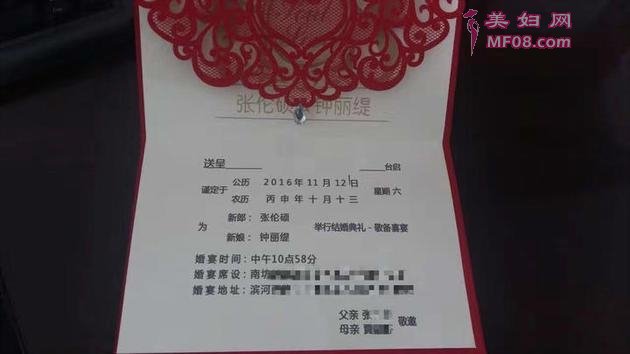 美妇网
MF08.com
张伦硕 钟丽缇
送呈 台启
公历 2016年11月12日
谨定于 星期六
农历 丙申年十月十三
新郎：张伦硕
为 举行结婚典礼-敬备喜宴
新娘：钟丽缇
婚宴时间：中午10点58分
婚宴席设：南坊
婚宴地址：滨河
父亲 张
敬邀
母亲 贾